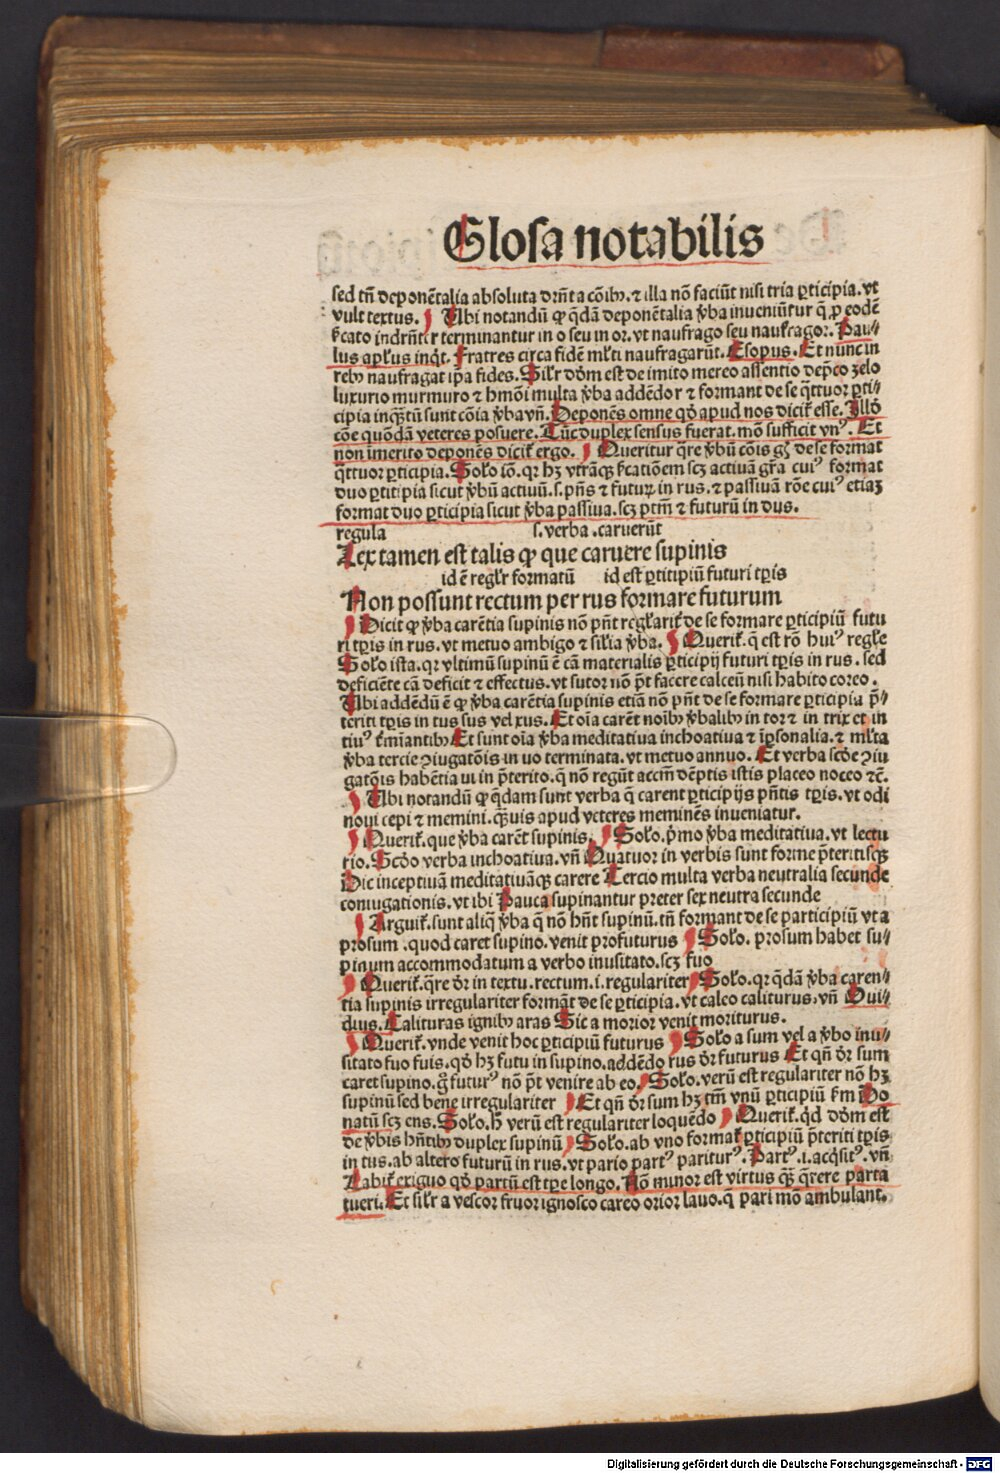 Glosa notabilis
sed tñ deponẽtalia absoluta drñt a cõibꝫ. ⁊ illa nõ faciũt nisi tria ꝑticipia. vt
vult textus. Ubi notandũ ꝙ qdã deponẽtalia ꝟba inveniũtur q̄ ꝓ eodẽ
terminantur in o seu in or. vt naufrago seu naufragor. Pau⸗
lus apl̓us inqt. Fratres circa fidẽ ml̓ti naufragarũt. Esopus. Et nunc in
rebꝫ naufragat ip̄a fides. Sil̓r dꝺm est de imito mereo assentio dep̄co zelo
luxurio murmuro ⁊ hmõi multa ꝟba addẽdo ⁊ formant de se q̄ttuor ꝑti⸗
cipia inq̄ꝫtũ sunt cõia ꝟba vñ. Deponẽs omne qꝺ apud nos dicit̃ esse. Illꝺ
cõe quõdã veteres posuere. Tũc duplex sensus fuerat. mõ sufficit vnꝰ. Et
non imerito deponẽs dicit̃ ergo. Queritur q̄re ꝟbũ cõis de se format
q̄ttuor ꝑticipia. Solꝺ iõ. qꝛ hꝫ vtrãqꝫ scꝫ activã gr̃a cuiꝰ format
duo ꝑticipia sicut ꝟbũ activũ. s. pñs ⁊ futuꝝ in rus. ⁊ passivã rõe cuiꝰ etiaꝫ
format duo ꝑticipia sicut ꝟba passiva. scꝫ ptm̃ ⁊ futurũ in dus.
regula s. verba . caruerũt
Lex tamen est talis ꝙ que caruere supinis
id ẽ regl̓r formatũ id est ꝑticipiũ futuri tꝑis
Non possunt rectum per rus formare futurum
Dicit ꝙ ꝟba carẽtia supinis nõ pñt regl̓arit̃ de se formare ꝑticipiũ futu
ri tꝑis in rus. vt metuo ambigo ⁊ sil̓ia ꝟba. Querit̃. q̄ est rõ huiꝰ regl̓e
Solꝺ ista. qꝛ vltimũ supinũ ẽ cã materialis ꝑticipij futuri tꝑis in rus. sed
deficiẽte cã deficit ⁊ effectus. vt sutor nõ p̃t facere calceũ nisi habito coreo.
Ubi addẽdũ ẽ ꝙ ꝟba carẽtia supinis etiã nõ pñt de se formare ꝑticipia p̄⸗
teriti tꝑis in tus sus vel xus. Et oĩa carẽt noĩbꝫ ꝟbalibꝫ in tor ⁊ in trix et in
tiuꝰ t̃mĩantibꝫ Et sunt oĩa ꝟba meditativa inchoativa ⁊ ĩꝑsonalia. ⁊ ml̓ta
ꝟba tercie ꝯiugatõis in uo terminata. vt metuo annuo. Et verba scꝺe ꝯiu
gatõis habẽtia ui in p̄terito. q̄ nõ regũt accm̃ dẽptis istis placeo noceo ⁊c̃.
Ubi notandũ ꝙ q̄dam sunt verba q̄ carent ꝑticipijs pñtis tꝑis. vt odi
novi cepi ⁊ memini. q̄ꝫuis apud veteres meminẽs inveniatur.
Querit̃. que ꝟba carẽt supinis. Solꝺ. p̃mo ꝟba meditativa. vt lectu
rio. Scꝺo verba inchoativa. vñ Quatuor in verbis sunt forme p̄teritisqꝫ
Hic inceptivã meditativãqꝫ carere Tercio multa verba neutralia secunde
coniugationis. vt ibi Pauca supinantur preter sex neutra secunde
Arguit̃. sunt aliq̄ ꝟba q̄ nõ hñt supinũ. tñ formant de se participiũ vt a
prosum . quod caret supino. venit profuturus Solꝺ. prosum habet su⸗
pinum accommodatum a verbo inusitato. scꝫ fuo
Querit̃. q̄re dr̃ in textu. rectum. i. regulariter Solꝺ. qꝛ q̄dã ꝟba caren⸗
tia supinis irregulariter formãt de se ꝑticipia. vt caleo caliturus. vñ Oui⸗
dius. Calituras ignibꝫ aras Sic a morior venit moriturus.
Querit̃. vnde venit hoc ꝑticipiũ futurus Solꝺ a sum vel a ꝟbo inu⸗
sitato fuo fuis. qꝺ hꝫ futu in supino. addẽdo rus dr̃ futurus Et qñ dr̃ sum
caret supino. g̃ futurꝰ nõ p̃t venire ab eo. Solꝺ. verũ est regulariter nõ hꝫ
supinũ sed bene irregulariter Et qñ dr̃ sum hꝫ tm̃ vnũ ꝑticipiũ km̃ Do
natũ scꝫ ens. Solꝺ. verũ est regulariter loquẽdo Querit̃. qd dꝺm est
de ꝟbis hñtibꝫ duplex supinũ Solꝺ. ab vno format̃ ꝑticipiũ p̄teriti tꝑis
in tus. ab altero futurũ in rus. vt pario partꝰ pariturꝰ. Partꝰ. i. acq̄sitꝰ. vñ
Labit̃ exiguo qꝺ partũ est tꝑe longo. Nõ minor est virtus q̄ꝫ q̄rere parta
tueri. Et sil̓r a vescor fruor ignosco careo orior lavo. q̄ pari mõ ambulant.
Digitalisierung gefördert durch die Deutsche Forschungsgemeinschaft - DFG